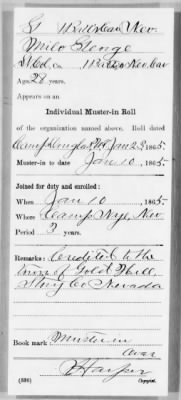 Nev.
Milo
Co.
Age 28 years.
Appears on an
Individual Muster-in Roll
of the organization named above. Roll dated
Camp Douglas Jan 25, 1865.
Muster-in to date Jan 10, 1865.
Joined for duty and enrolled:
When Jan 10, 1865.
Where Camp Nye, Nev.
Period 3 years.
Remarks: Credited to the
town of Gold Hill,
Story Co Nevada
Book mark: Muster in
Harper
(356) Copyist.